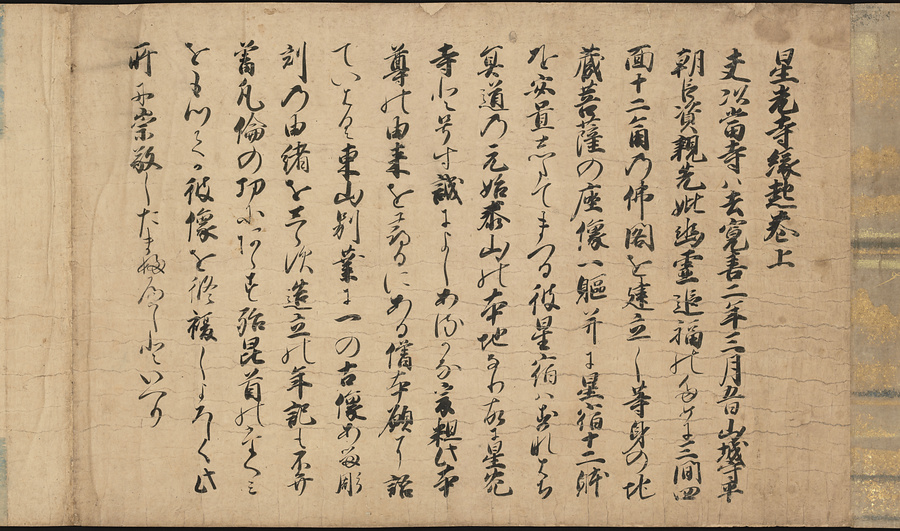 星光寺縁起巻上
夫以當寺ハ去寛喜二年二月五日山城守平
朝臣資親先妣幽霊追福のために三間四
面十二角の佛閣を建立し等身の地
蔵菩薩の座像一軀并に星宿十二躰
を安置したてまつる彼星宿ハすなはち
冥道の元始泰山の本地なり故に星光
寺と号す誠によしあるかな爰粗此本
尊の由来を尋るにある僧本願に語
ていはく東山別業に一の古像あり彫
刻の由緒をしらす造立の年記を不弁
蓋凡倫の功にあらす殆昆首の
をもつて彼像を修複しよろしく此
所に崇敬したまふへしといへり